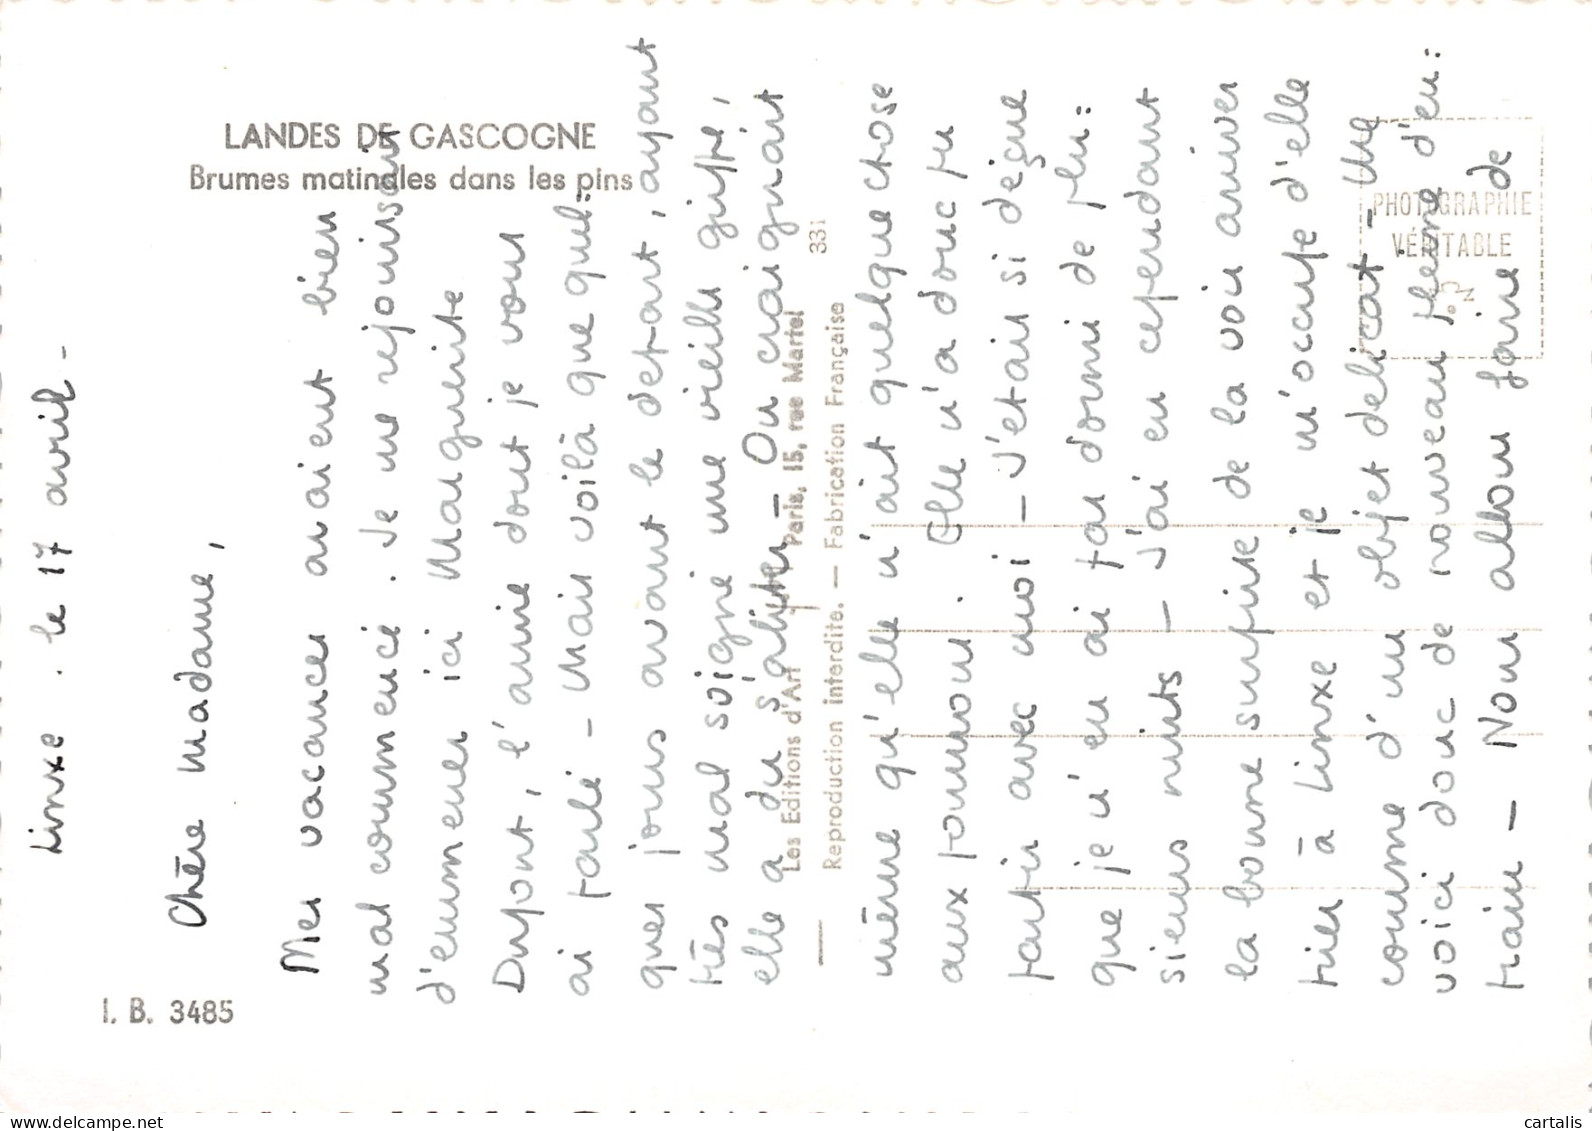 LANDES DE GASCOGNE
Brumes matinales dans les pins
I. B. 3485
Les Editions d'Art Paris, 15, rue Martel
331
Reproduction interdite. — Fabrication Française
PHOTOGRAPHIE
VÉRITABLE
Linxe. le 17 avril -
Chère Madame,
Mes vacances avaient bien
mal commencé. Je me rejouissais
d'emmener ici Marguerite
Dupont, l'amie dont je vous
ai parlé - Mais voilà que quel=
ques jours avant le depart, ayant
très mal soigné une vieille grippe,
elle a du s'aliter - On craignait
même qu'elle n'ait quelque chose
aux poumons. Elle n'a donc pu
partir avec moi - J'étais si déçue
que je n'en ai pas dormi de plu=
sieurs nuits - J'ai eu cependant
la bonne surprise de la voir arriver
hier à Linxe et je m'occupe d'elle
comme d'un objet delicat - Me
voici donc de nouveau pleine d'en=
train - Nous allons faire de